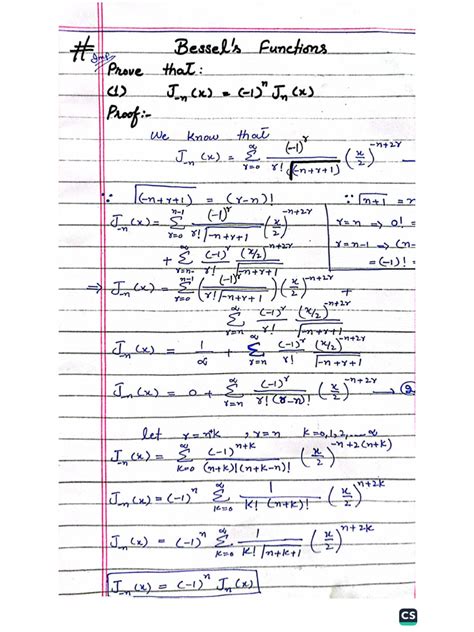 # Bessel's Functions
Imp
Prove that:
(1) J₋ₙ(x) = (-1)ⁿ Jₙ(x)
Proof:-
We know that
J₋ₙ(x) = ∞ Σ r=0 (-1)^r / r! √(-n+r+1) (x/2)^(-n+2r)
∵ √(-n+r+1) = (r-n)! ∵ √n+1 =
J₋ₙ(x) = n-1 Σ r=0 (-1)^r / r! √-n+r+1 (x/2)^(-n+2r) r=n ⇒ 0! =
+ ∞ Σ r=n (-1)^r / r! (x/2)^(-n+2r) / √-n+r+1 r=n-1 ⇒ (n-
= (-1)! =
⇒ J₋ₙ(x) = n-1 Σ r=0 ((-1)^r / r! √-n+r+1) (x/2)^(-n+2r) +
∞ Σ r=n (-1)^r / r! (x/2)^(-n+2r) / √-n+r+1
J₋ₙ(x) = 1/∞ + ∞ Σ r=n (-1)^r / r! (x/2)^(-n+2r) / √-n+r+1
J₋ₙ(x) = 0 + ∞ Σ r=n (-1)^r / r! (r-n)! (x/2)^(-n+2r) → (2
let r = n+k , r=n k=0,1,2,...∞
J₋ₙ(x) = ∞ Σ k=0 (-1)^(n+k) / (n+k)! (n+k-n)! (x/2)^(-n+2(n+k))
J₋ₙ(x) = (-1)ⁿ ∞ Σ k=0 1 / k! (n+k)! (x/2)^(n+2k)
J₋ₙ(x) = (-1)ⁿ ∞ Σ k=0 1 / k! √n+k+1 (x/2)^(n+2k)
J₋ₙ(x) = (-1)ⁿ Jₙ(x)
CS